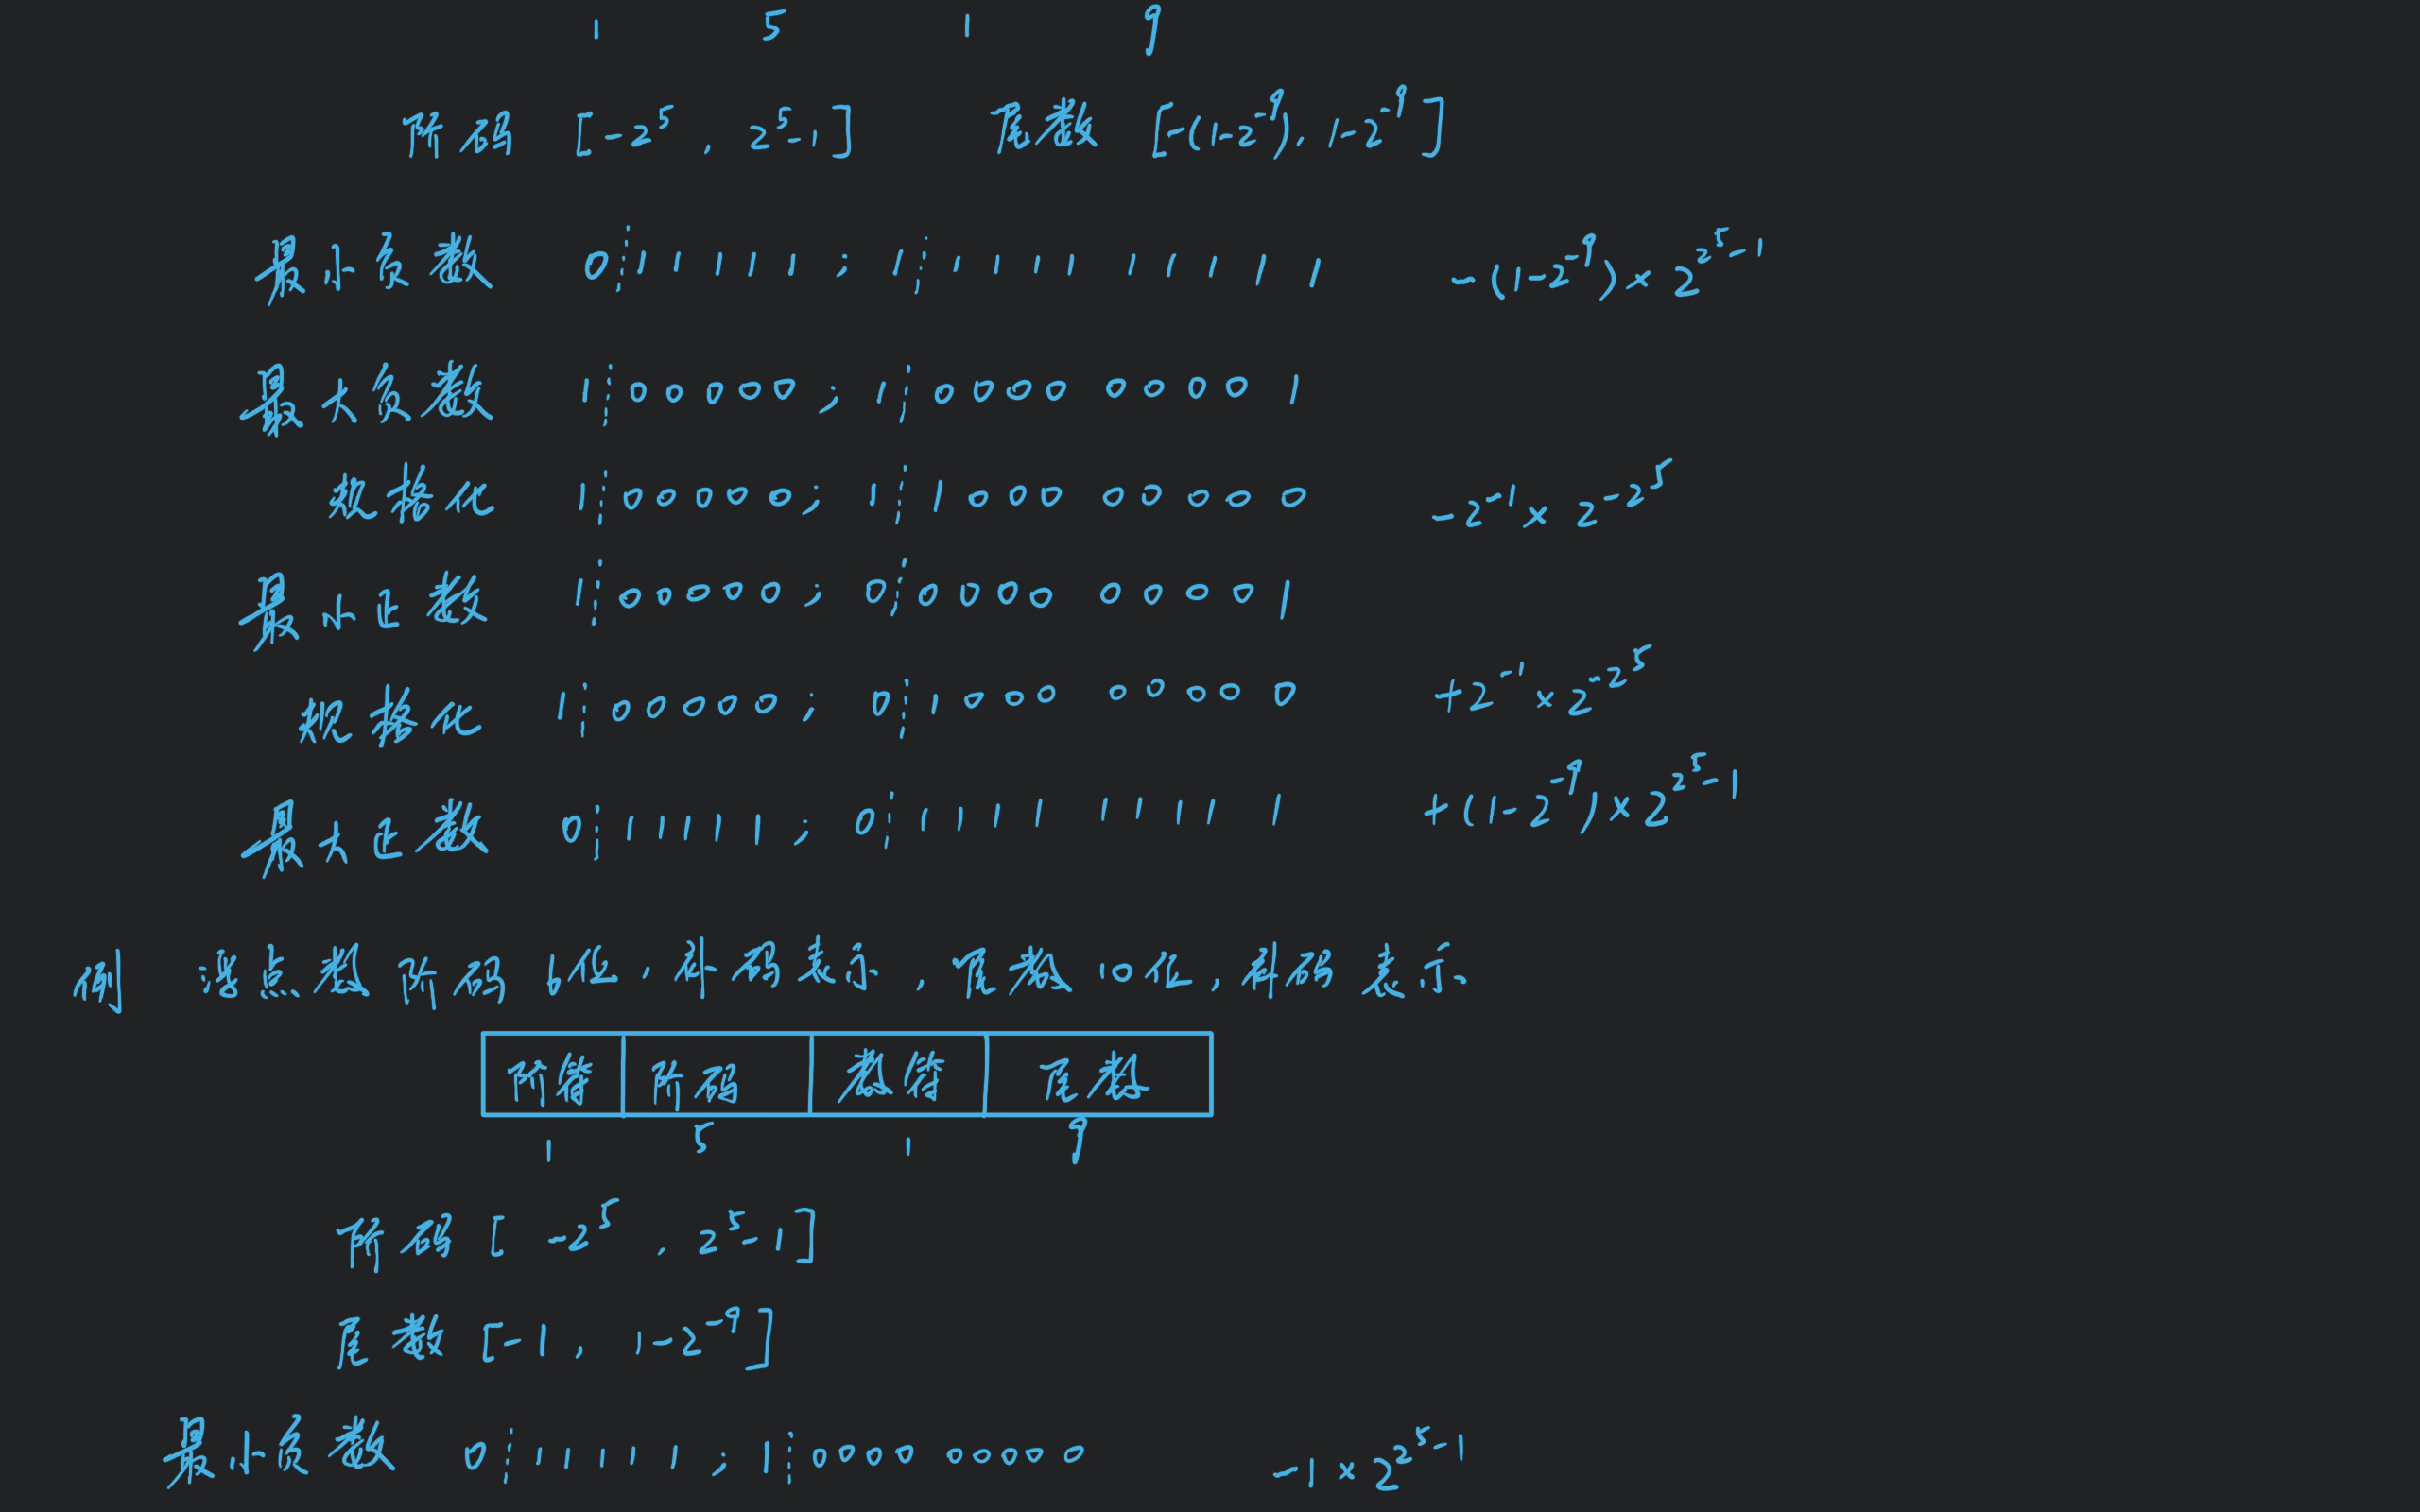 1 5 1 9
阶码 [-2^5, 2^5-1] 尾数 [-(1-2^-9), 1-2^-9]
最小负数 0¦11111; 1¦1111 11111 -(1-2^-9)×2^(2^5-1)
最大负数 1¦00000; 1¦0000 00001
规格化 1¦00000; 1¦1000 00000 -2^-1×2^(-2^5)
最小正数 1¦00000; 0¦0000 00001
规格化 1¦00000; 0¦1000 00000 +2^-1×2^(-2^5)
最大正数 0¦11111; 0¦1111 11111 +(1-2^-9)×2^(2^5-1)
例 浮点数阶码6位,补码表示,尾数10位,补码表示.
阶符 阶码 数符 尾数
1 5 1 9
阶码 [-2^5, 2^5-1]
尾数 [-1, 1-2^-9]
最小负数 0¦11111; 1¦0000 00000 -1×2^(2^5-1)